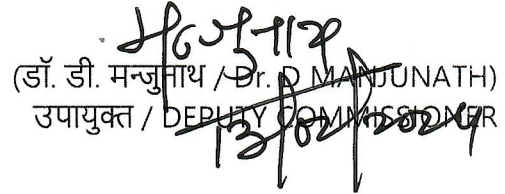 मन्जुनाथ
(डॉ. डी. मन्जुनाथ / Dr. D MANJUNATH)
उपायुक्त / DEPUTY COMMISSIONER